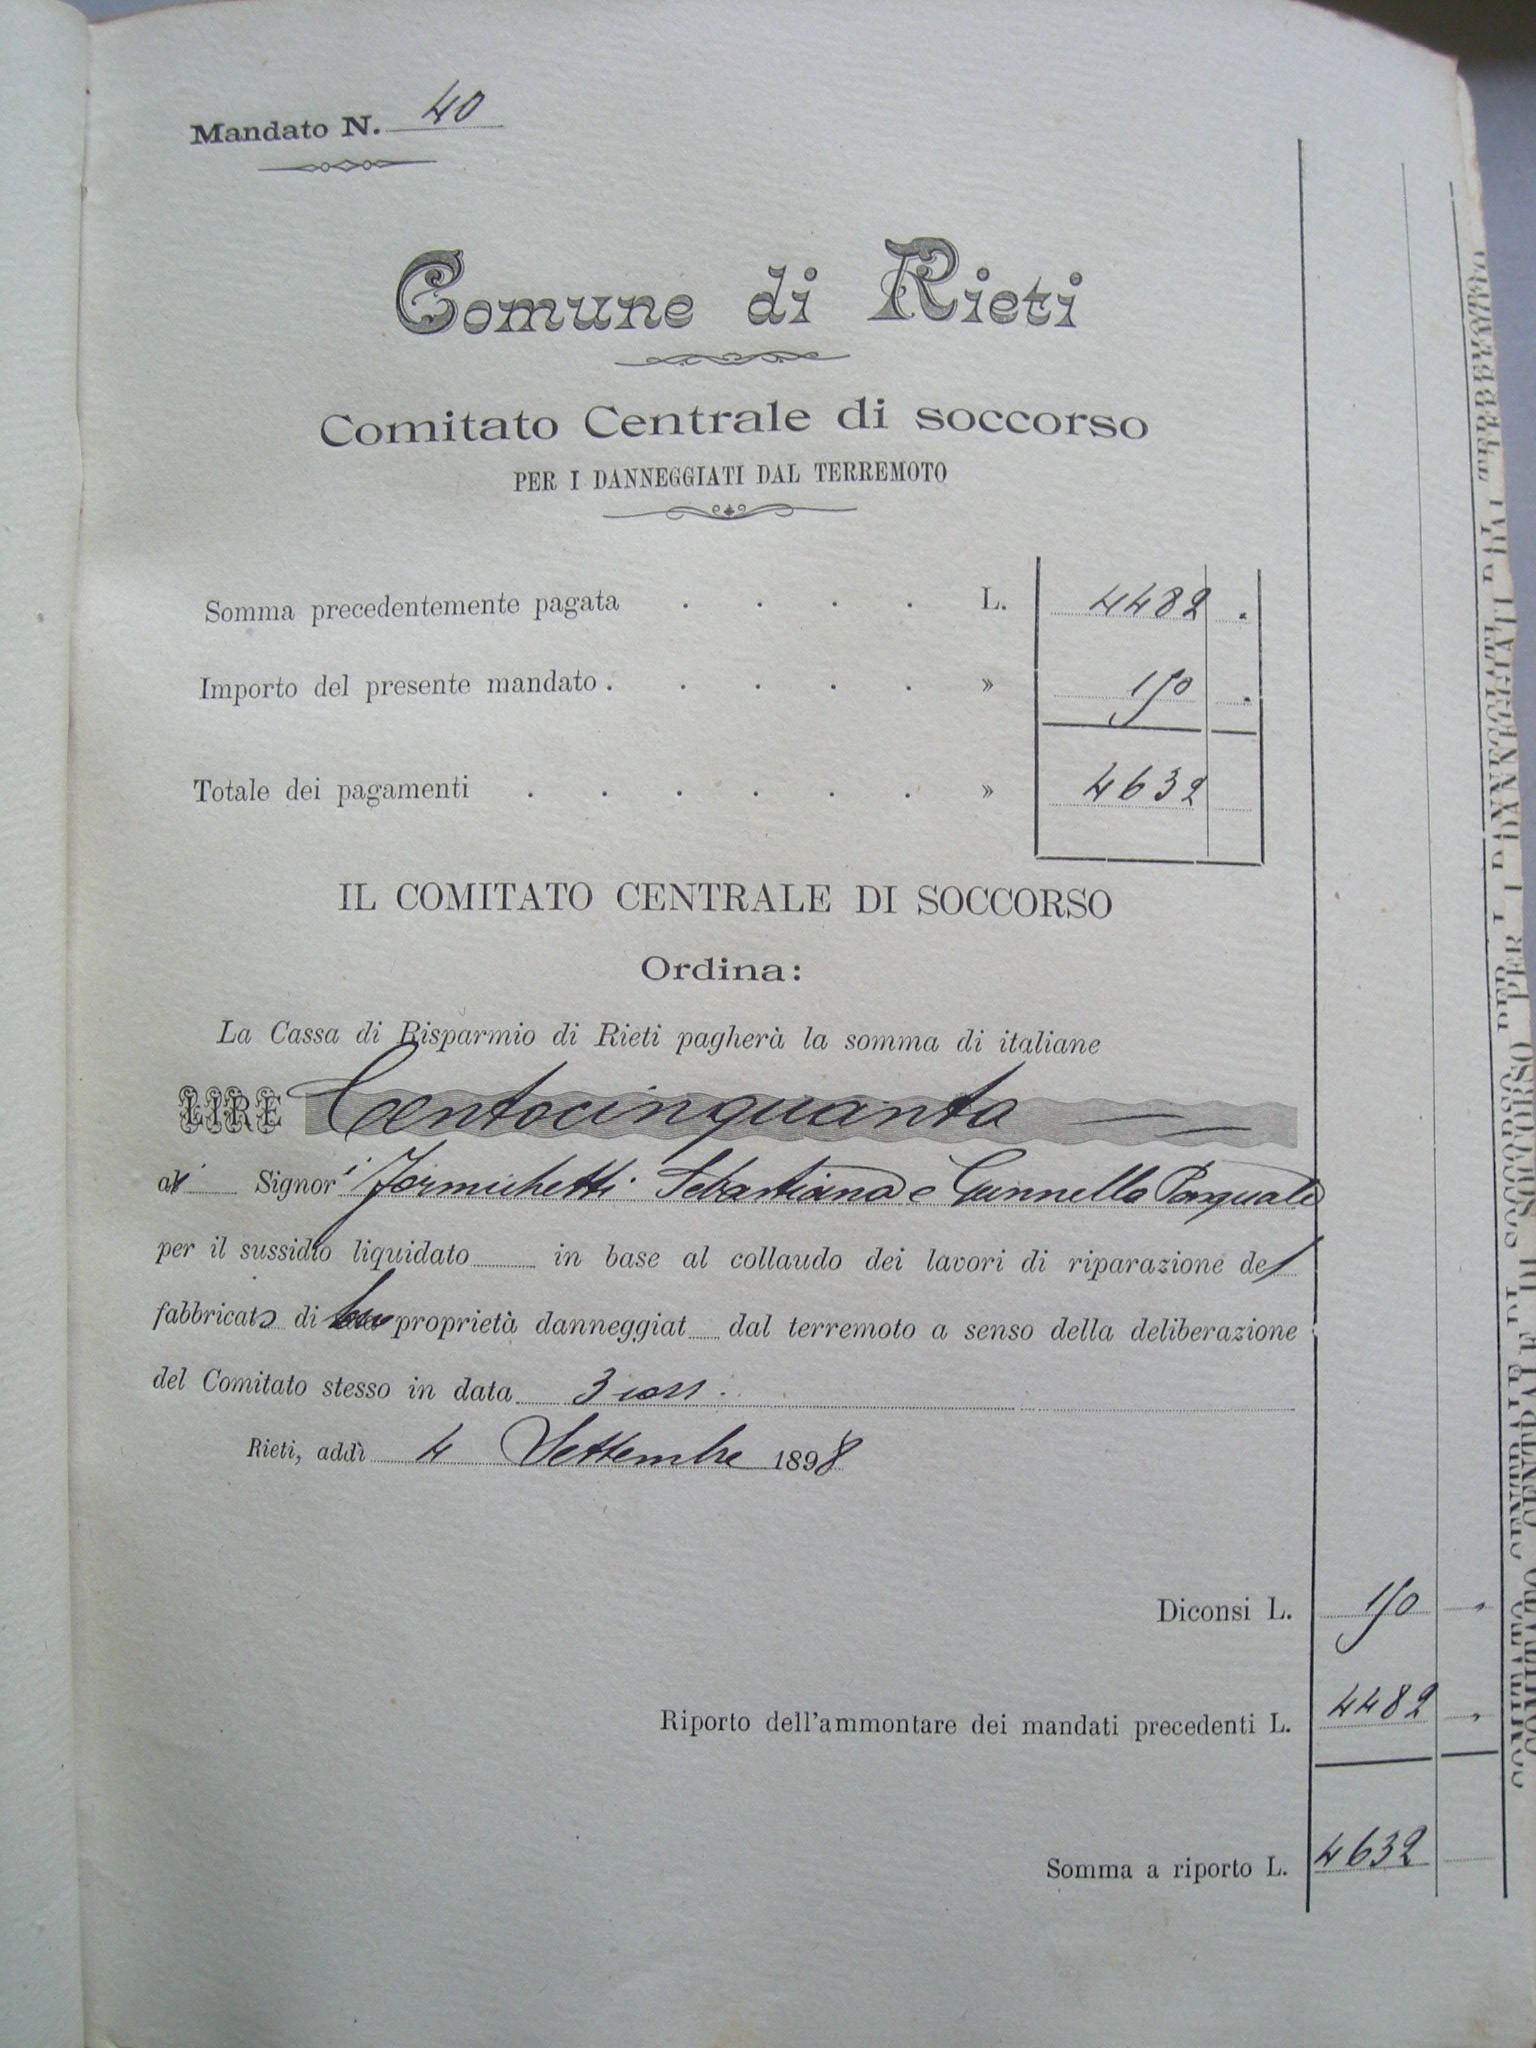 Mandato N. 40
Comune di Rieti
Comitato Centrale di soccorso
PER I DANNEGGIATI DAL TERREMOTO
Somma precedentemente pagata . . . . L. 4482 .
Importo del presente mandato . . . . . » 150 .
Totale dei pagamenti . . . . . . » 4632
IL COMITATO CENTRALE DI SOCCORSO
Ordina:
La Cassa di Risparmio di Rieti pagherà la somma di italiane
LIRE Centocinquanta
ai Signori Formichetti Sebastiana e Gunnella Pasquale
per il sussidio liquidato in base al collaudo dei lavori di riparazione del
fabbricato di loro proprietà danneggiat dal terremoto a senso della deliberazione
del Comitato stesso in data 3 corr.
Rieti, addì 4 Settembre 1898
Diconsi L. 150 "
Riporto dell'ammontare dei mandati precedenti L. 4482 "
Somma a riporto L. 4632